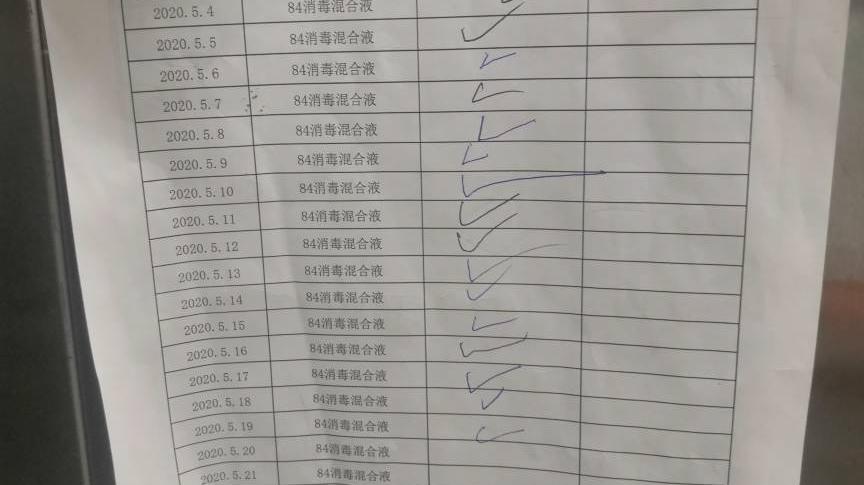 2020.5.4 84消毒混合液 ✓
2020.5.5 84消毒混合液 ✓
2020.5.6 84消毒混合液 ✓
2020.5.7 84消毒混合液 ✓
2020.5.8 84消毒混合液 ✓
2020.5.9 84消毒混合液 ✓
2020.5.10 84消毒混合液 ✓
2020.5.11 84消毒混合液 ✓
2020.5.12 84消毒混合液 ✓
2020.5.13 84消毒混合液 ✓
2020.5.14 84消毒混合液 ✓
2020.5.15 84消毒混合液 ✓
2020.5.16 84消毒混合液 ✓
2020.5.17 84消毒混合液 ✓
2020.5.18 84消毒混合液 ✓
2020.5.19 84消毒混合液 ✓
2020.5.20 84消毒混合液
2020.5.21 84消毒混合液